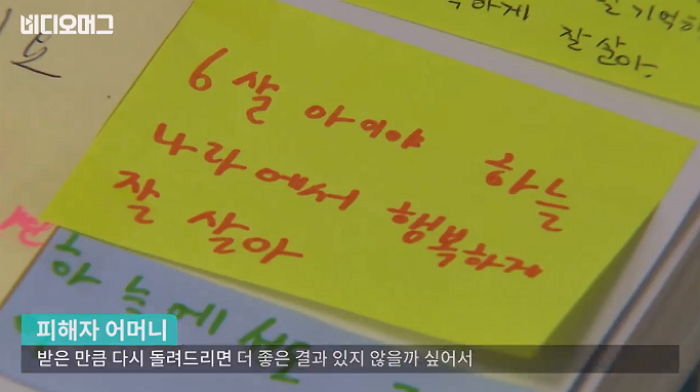 비디오머그
하게
기억하
잘 살아.
6살 아이야 하늘
나라에서 행복하게
잘 살아
하늘에서도
피해자 어머니
받은 만큼 다시 돌려드리면 더 좋은 결과 있지 않을까 싶어서